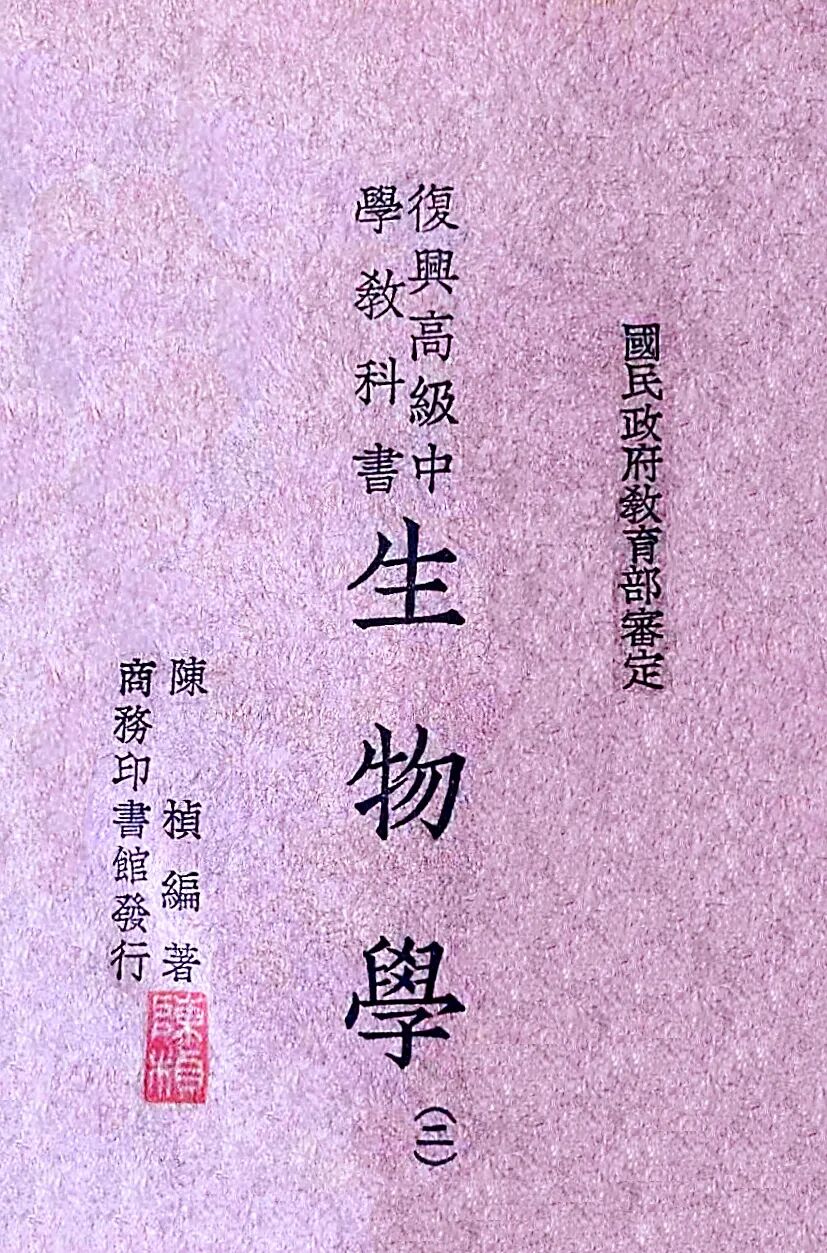 國民政府教育部審定
復興高級中
學教科書
生物學
(二)
陳楨編著
商務印書館發行
陳楨